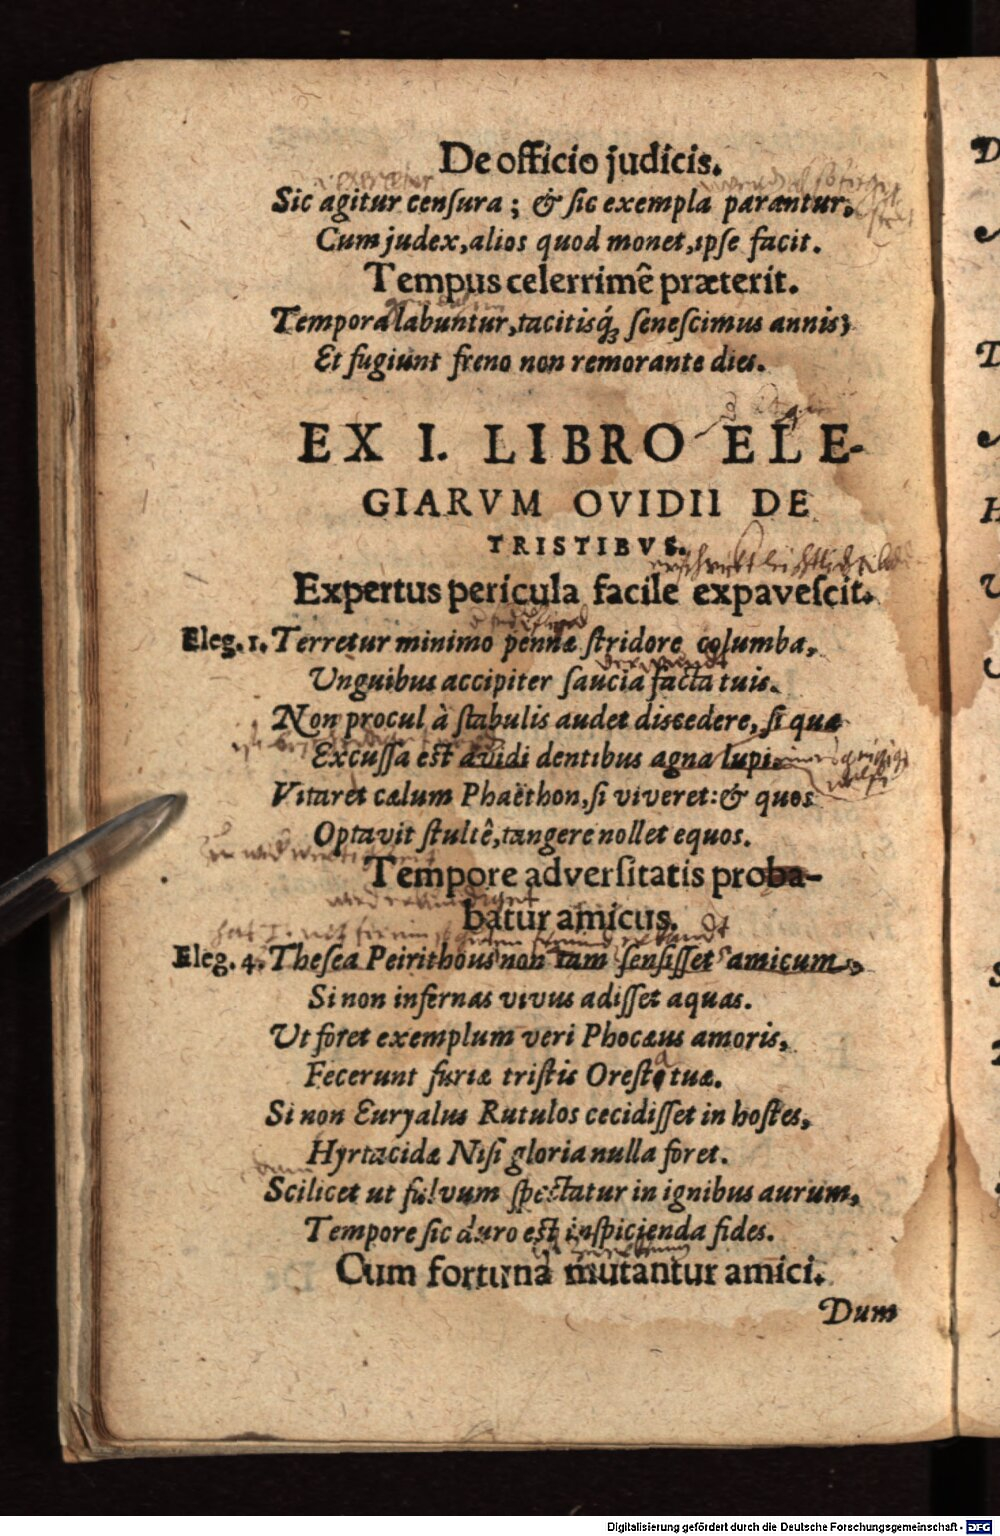 De officio judicis.
Sic agitur censura; & sic exempla parantur,
Cum judex, alios quod monet, ipse facit.
Tempus celerrimê præterit.
Tempora labuntur, tacitisq́; senescimus annis;
Et fugiunt freno non remorante dies.
EX I. LIBRO ELE-
GIARVM OVIDII DE
TRISTIBVS.
Expertus pericula facile expavescit.
Eleg. 1. Terretur minimo pennæ stridore columba,
Unguibus accipiter saucia facta tuis.
Non procul à stabulis audet discedere, si qua
Excussa est avidi dentibus agna lupi.
Vitaret cælum Phaëthon, si viveret: & quos
Optavit stultê, tangere nollet equos.
Tempore adversitatis proba-
batur amicus.
Eleg. 4. Thesea Peirithous non tam sensisset amicum,
Si non infernas vivus adisset aquas.
Ut foret exemplum veri Phocæus amoris,
Fecerunt furiæ tristis Oresta tuæ.
Si non Euryalus Rutulos cecidisset in hostes,
Hyrtacidæ Nisi gloria nulla foret.
Scilicet ut fulvum spectatur in ignibus aurum,
Tempore sic duro est inspicienda fides.
Cum fortuna mutantur amici.
Dum
Digitalisierung gefördert durch die Deutsche Forschungsgemeinschaft - DFG